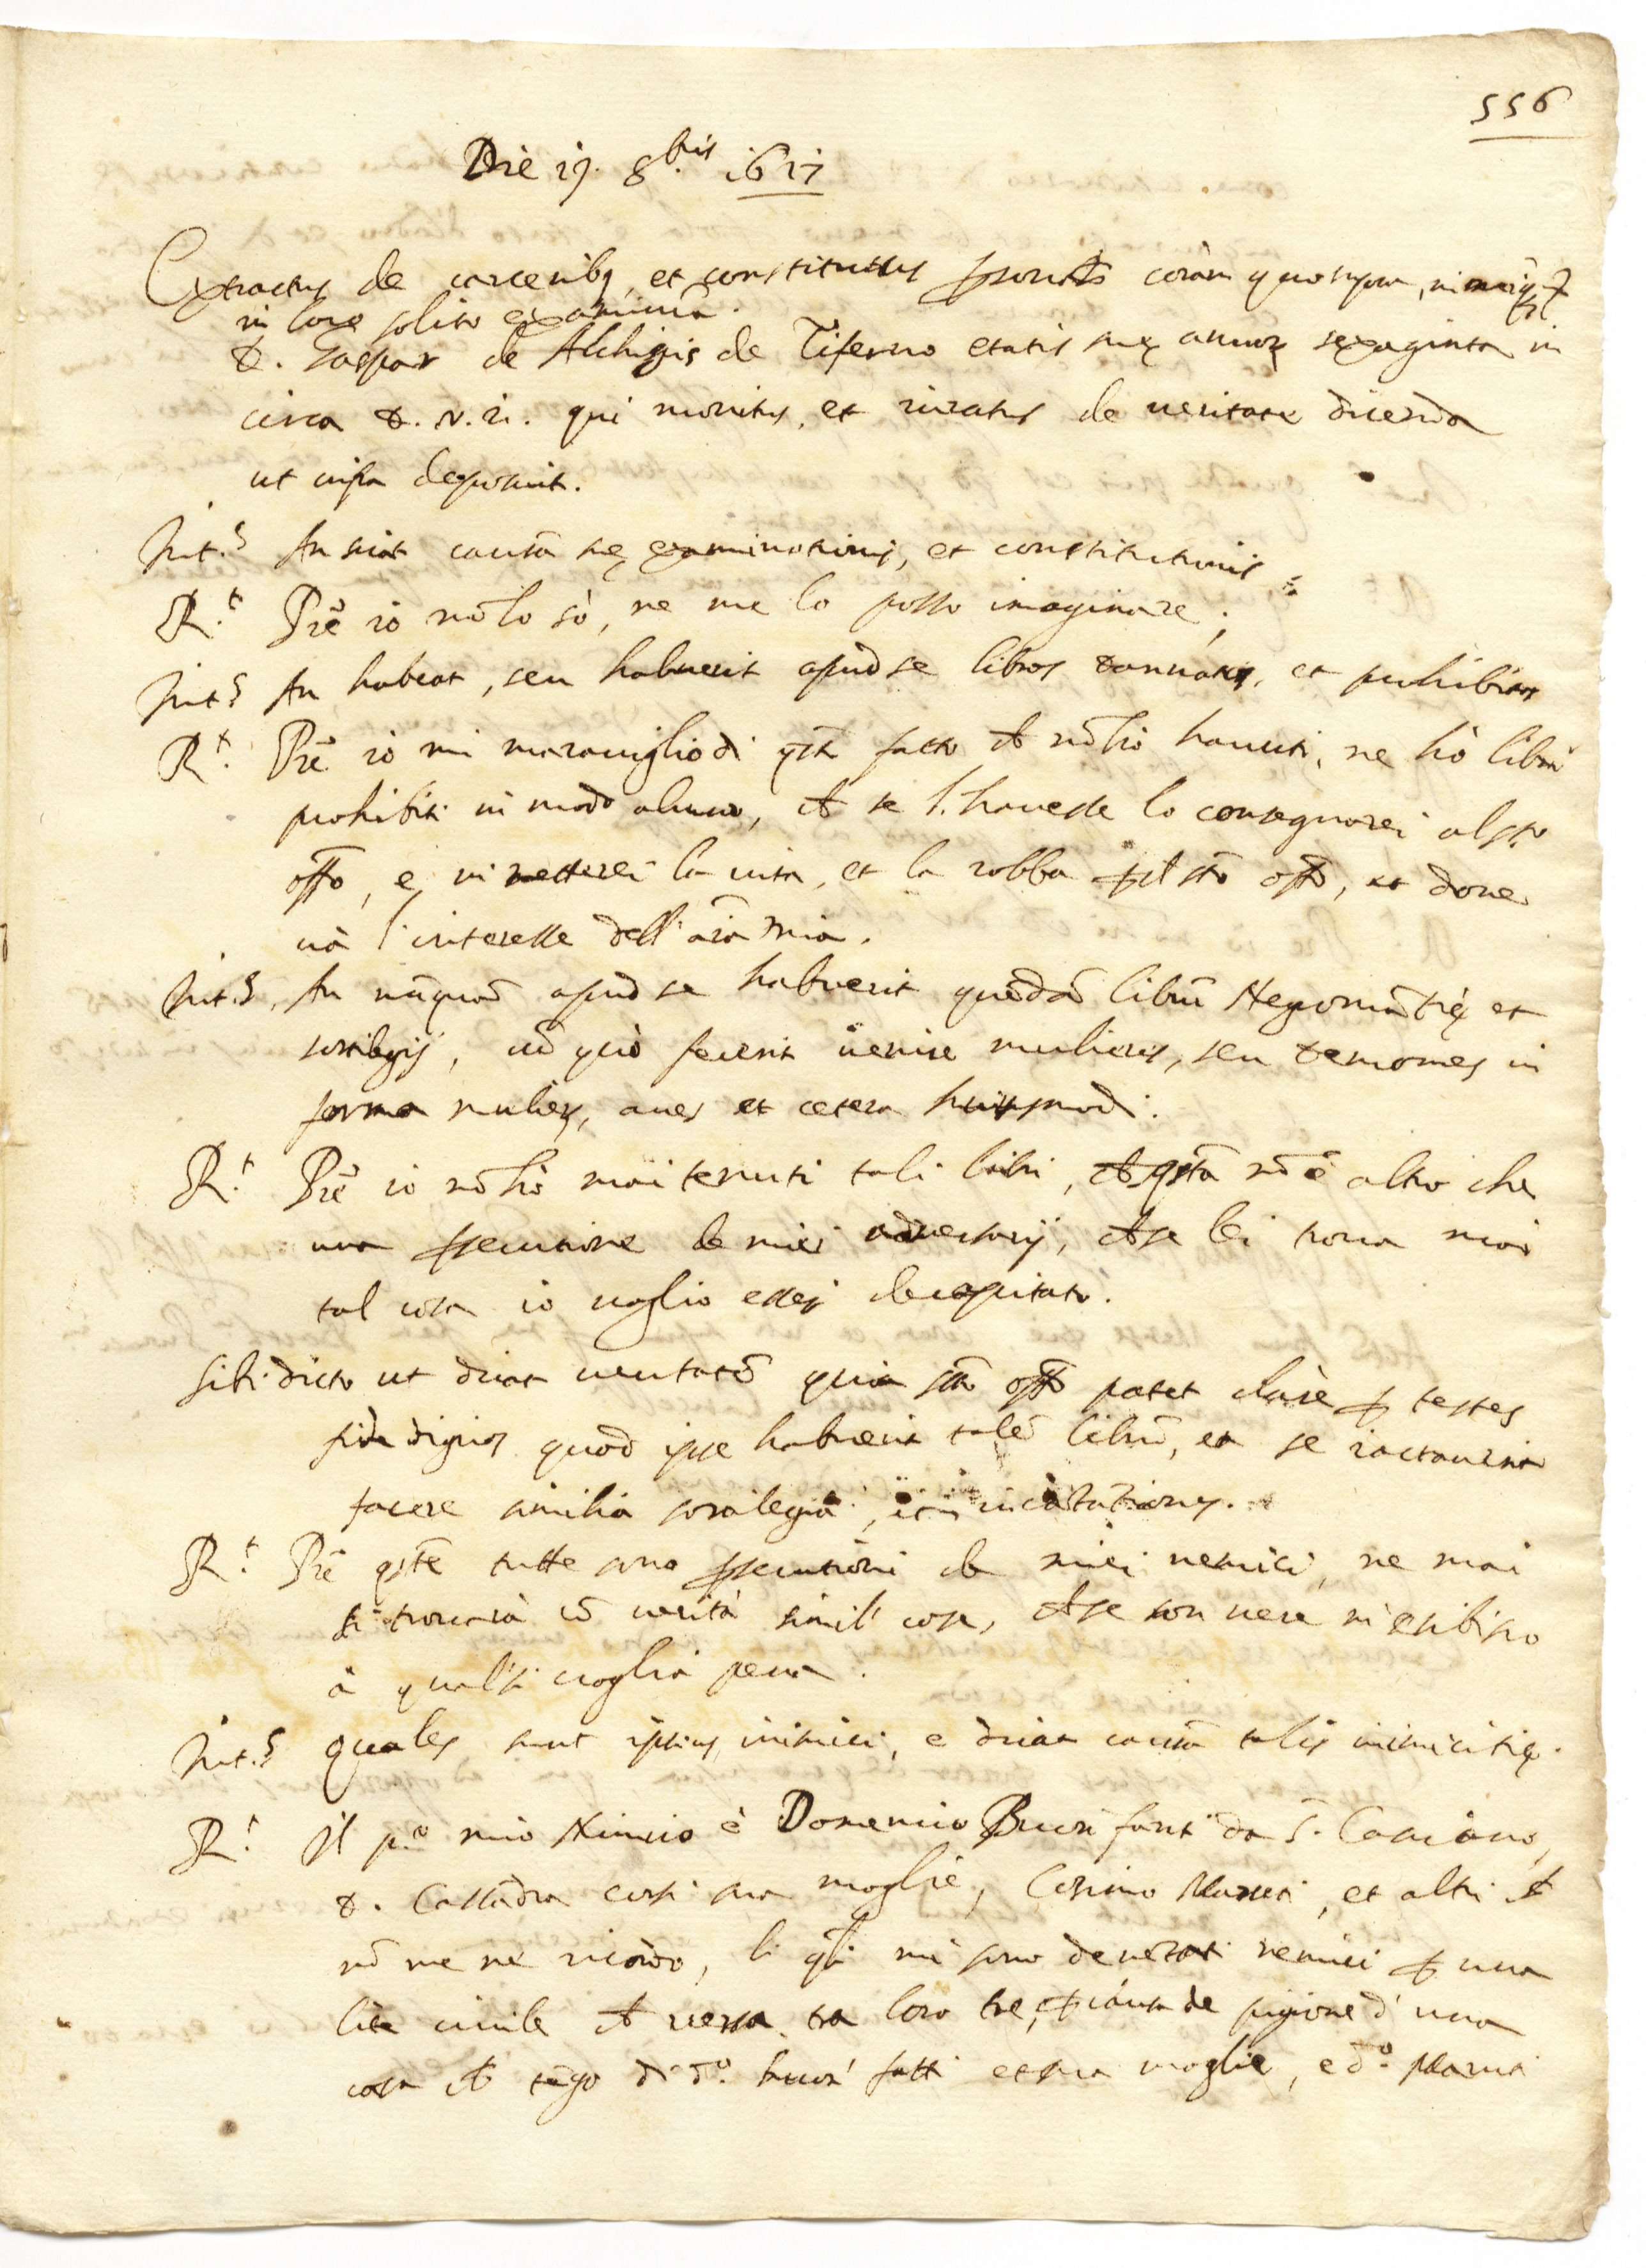 556
Die 19. 8bris 1627
Extractus de carceribq, et constitutus psonalr coram quo supra, in meiq
in loco solito examinũ.
D. Gaspar de Alchigis de Tiferno etatis suę annoꝝ sexaginta in
circa D. N. R. qui monitus, et iuratus de veritate dicenda
ut infra deposuit.
Int.s An sciat causã suę examinationis, et constitutionis
R.t Prẽ io nõ lo sò, ne me lo posso imaginare;
Int.s An habeat, seu habuerit apud se libros damnatos, et prohibitos
R.t Prẽ io mi marauiglio di qsta fatto ch nõ hò hauuti, ne hò libri
prohibiti in modo alcuno, ch se l'hauesse lo consegnarei al sto
offo, e vi metterei la vita, et la robba p il sto offo, et doue
uà l'interesse dell'aĩa mia.
Int.s An nũquã apud se habuerit quẽdã librũ Negromãtię et
sortilegij, cũ quò fecerit uenire mulieres, seu demones in
forma mulieꝝ, aues et cetera huiusmodi.
R.t Prẽ io nõ hò mai tenuti tali libri, ch qsta nõ è altro che
una psecutione de miei aduersarij, ch se lei troua mai
tal cosa io uoglio esser decapitato.
Sibi dicto ut dicat ueritatẽ quia sto offo patet clarè p testes
fide dignos quod ipse habuerit talẽ librũ, et se iactauerit
facere similia sortilegia, incãtationes.
R.t Prẽ qste tutte sono psecutioni de miei nemici, ne mai
si trouarà cõ uerità simil' cosa, ch se son uere m'esibisco
à qualsi uoglia pena.
Int.s Quales sunt ipsius inimici, e dicat causã talis inimicitię.
R.t Il p.o mio Nimico è Domenico Buon fanti da S. Casciano,
D. Cassãdra Corsi sua moglie, Cosimo Manni, et altri ch
nõ me ne ricordo, li qli mi sono deuentati nemici p una
lite ciuile ch uersa tra loro tre, p causa de pigione d'una
casa ch tẽgo di d.o buon' fatti et sua moglie, e d.o Manni